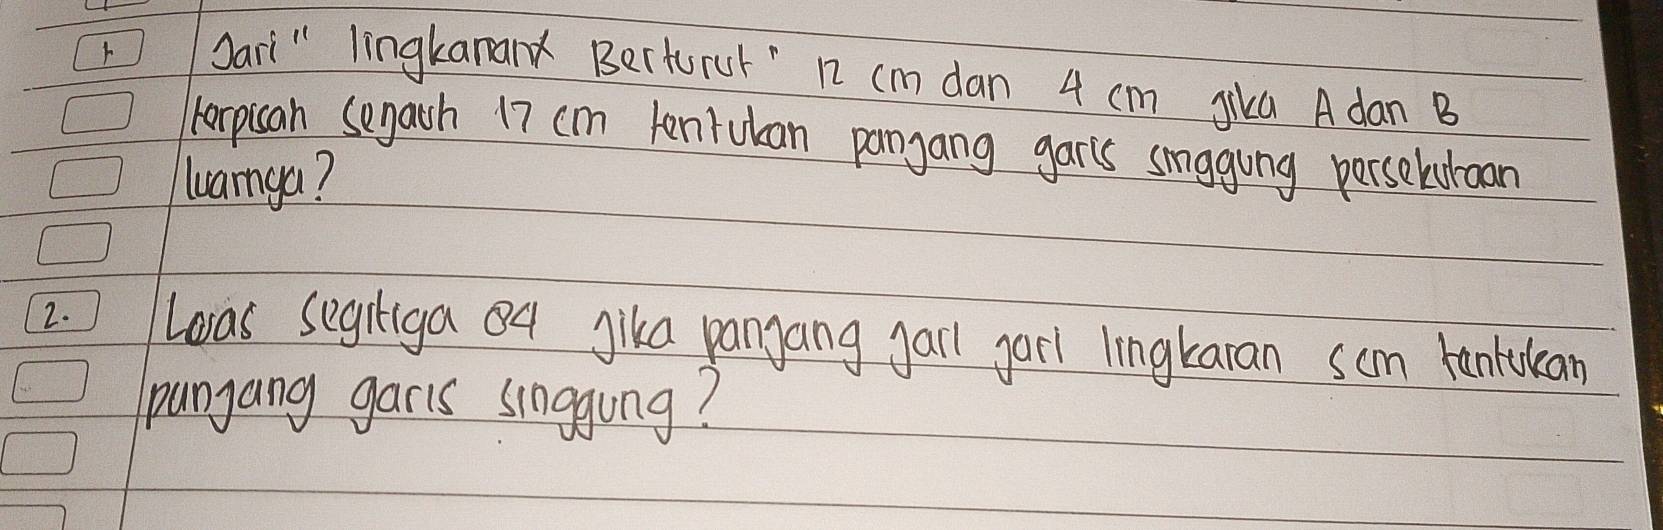 1. Jari" lingkaran Berturut" 12 cm dan 4 cm jika A dan B
terpisah sejauh 17 cm tentukan panjang garis singgung persekutuan
luarnya?
2. Luas segitiga 84 jika panjang jari jari lingkaran 5 cm tentukan
panjang garis singgung?